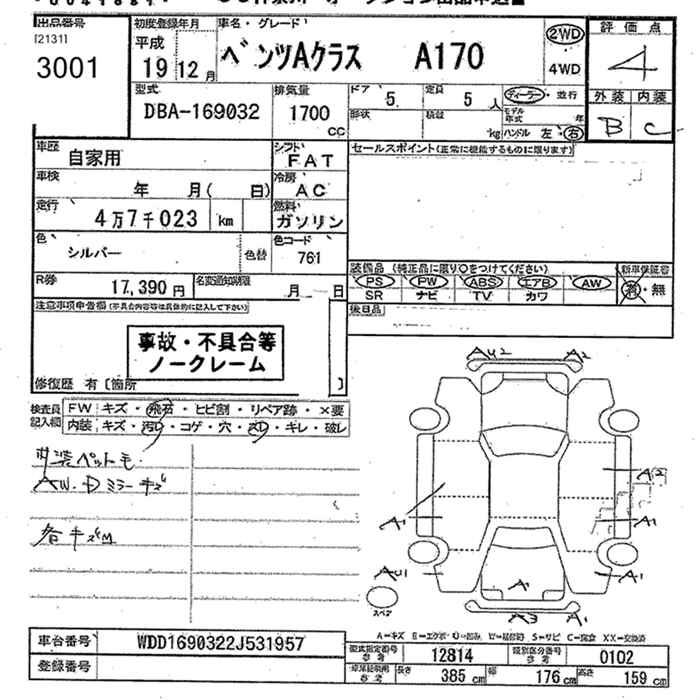 出品番号
[2131]
3001
初度登録年月
平成
19 12月
車名・グレード
ベンツAクラス A170
2WD
4WD
評価点
4
外装 内装
B C
型式
DBA-169032
排気量
1700
CC
ドア 5
定員 5 人
形状
積載 kg
ディーラー・並行
モデル年式 年
ハンドル 左・右
車歴
自家用
シフト
FAT
セールスポイント(正常に機能するものに限ります)
車検
年 月( 日)
冷房
AC
走行
4万7千023 km
燃料
ガソリン
色
シルバー
色替
色コード
761
装備品(純正品に限り○をつけてください)
PS PW ABS エアB AW
SR ナビ TV カワ
新車保証書
有・無
R券
17,390円
名変通知期限
月 日
後日品
注意事項申告欄(不具合内容等は具体的に記入して下さい)
事故・不具合等
ノークレーム
修復歴 有[箇所 ]
検査員
記入欄
FW キズ・飛石・ヒビ割・リペア跡・×要
内装 キズ・汚れ・コゲ・穴・スレ・キレ・破レ
内装ペットモ
AW.Dミラーキズ
各キズM
AU2 A2
A2
A1 A1
AU1 A1 A1
スペア
A3 A1
A=キズ E=エクボ U=凹み W=補修跡 S=サビ C=腐食 XX=交換済
車台番号
WDD1690322J531957
登録番号
型式指定番号
参考
12814
類別区分番号
参考
0102
参考
長さ 385 cm
幅 176 cm
高さ 159 cm